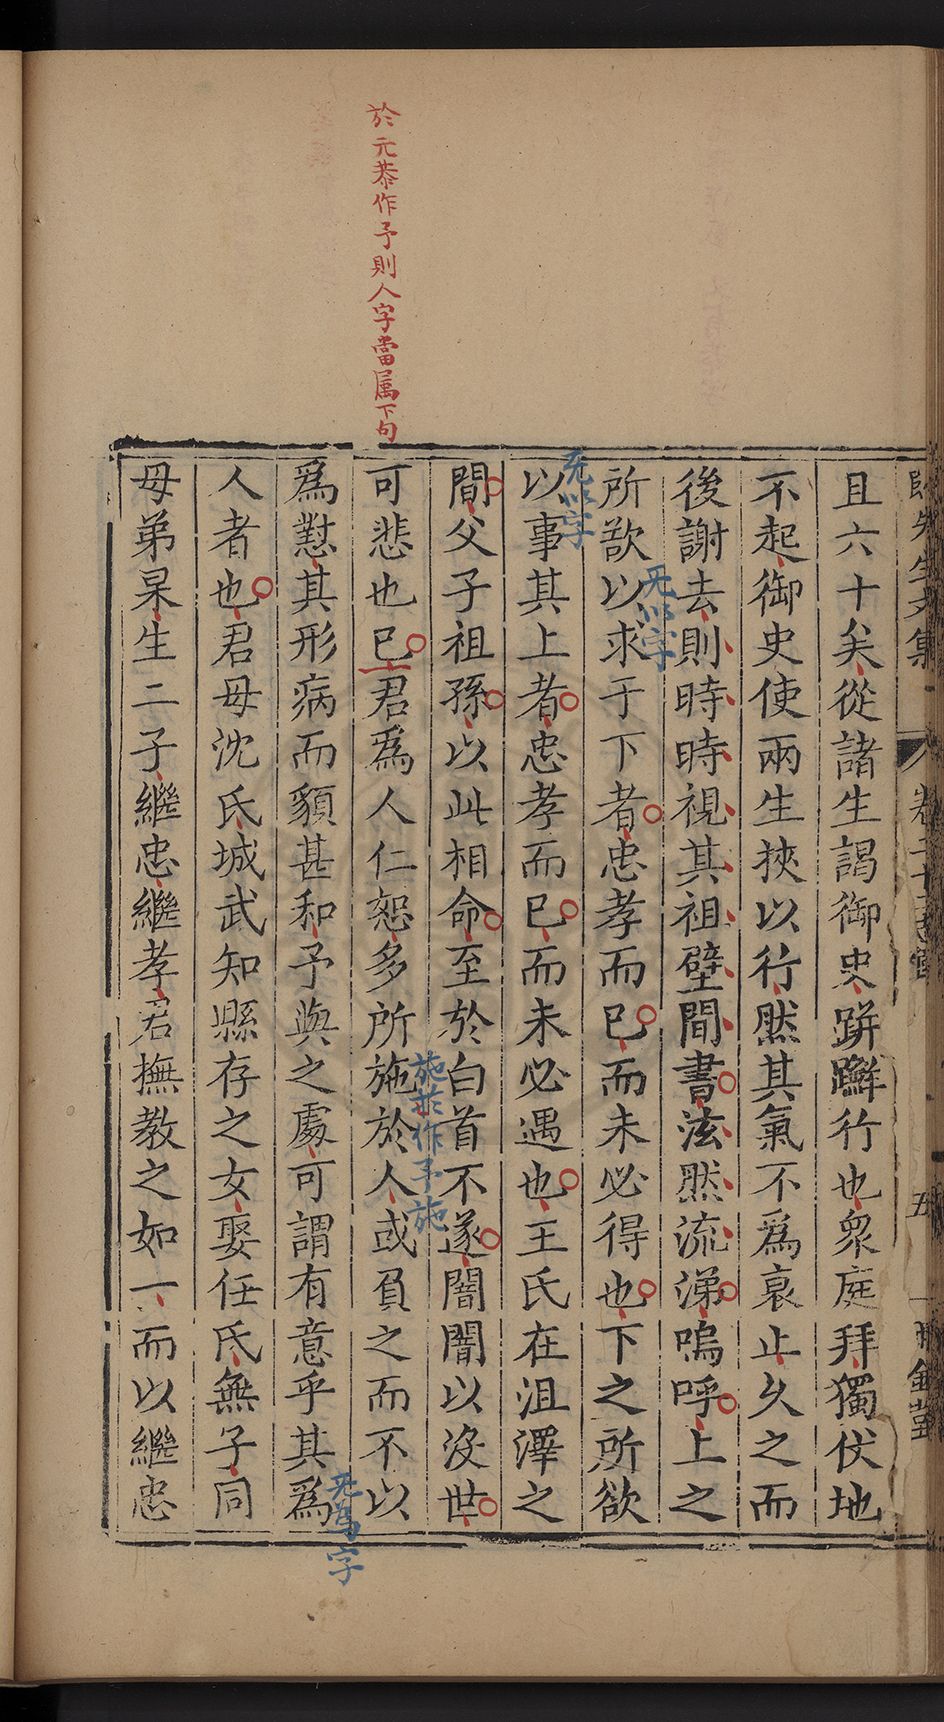 且六十矣從諸生謁御史跰躃行也衆庭拜獨伏地
不起御史使兩生挾以行然其氣不爲衰止久之而
後謝去則時時視其祖壁間書泫然流涕嗚呼上之
所欲以求于下者忠孝而已而未必得也下之所欲
以事其上者忠孝而已而未必遇也王氏在沮澤之
間父子祖孫以此相命至於白首不遂闇闇以沒世
可悲也已君爲人仁恕多所施於人或負之而不以
爲懟其形病而貌甚和予與之處可謂有意乎其爲
人者也君母沈氏城武知縣存之女娶任氏無子同
母弟杲生二子繼忠繼孝君撫教之如一而以繼忠
於元恭作予則人字當属下句
无以字
无以字
施於作予施
无爲字
先生文集
卷二十
五